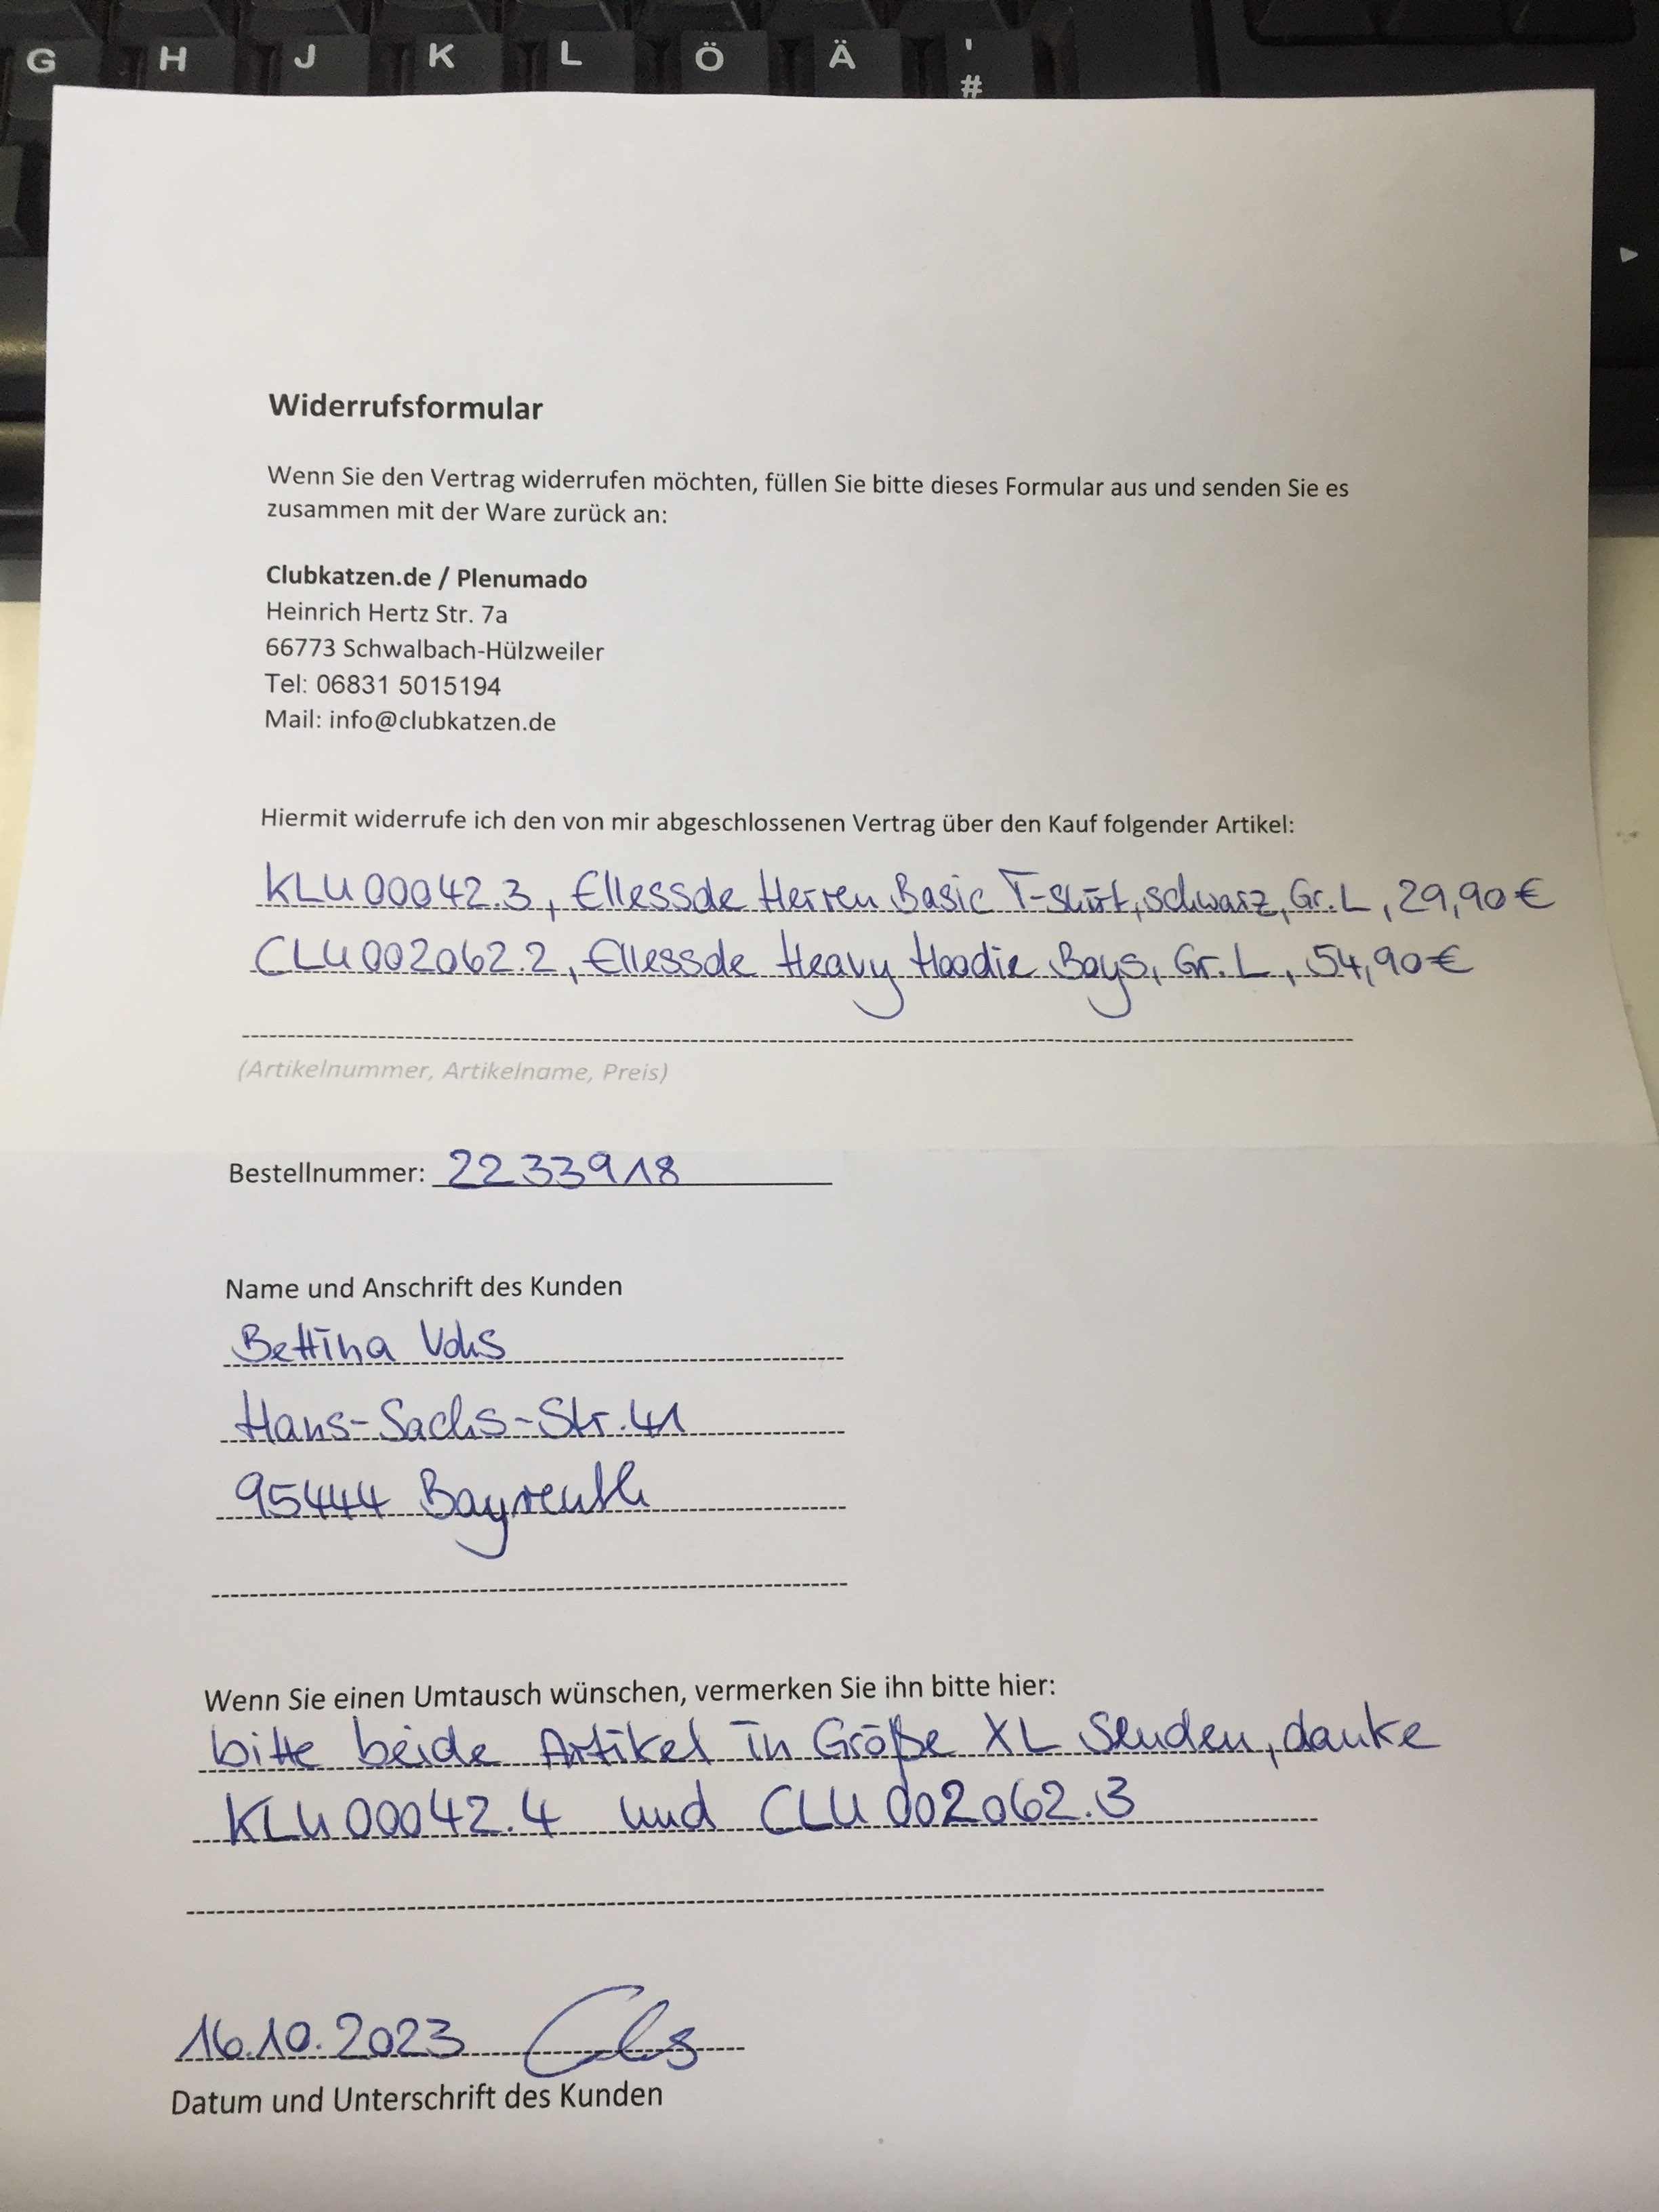 G H J K L Ö Ä '
#
Widerrufsformular
Wenn Sie den Vertrag widerrufen möchten, füllen Sie bitte dieses Formular aus und senden Sie es
zusammen mit der Ware zurück an:
Clubkatzen.de / Plenumado
Heinrich Hertz Str. 7a
66773 Schwalbach-Hülzweiler
Tel: 06831 5015194
Mail: info@clubkatzen.de
Hiermit widerrufe ich den von mir abgeschlossenen Vertrag über den Kauf folgender Artikel:
KLU00042.3, Ellessde Herren Basic T-Shirt, schwarz, Gr. L, 29,90€
CLU002062.2, Ellessde Heavy Hoodie Boys, Gr. L, 54,90€
(Artikelnummer, Artikelname, Preis)
Bestellnummer: 2233918
Name und Anschrift des Kunden
Bettina
Hans-Sachs-Str. 41
95444 Bayreuth
Wenn Sie einen Umtausch wünschen, vermerken Sie ihn bitte hier:
bitte beide Artikel in Größe XL senden, danke
KLU00042.4 und CLU002062.3
16.10.2023
Datum und Unterschrift des Kunden